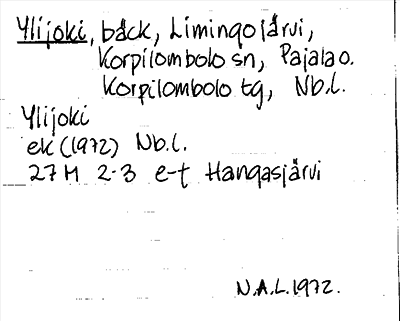 Ylijoki, bäck, Limingojärvi,
Korpilombolo sn, Pajala o.
Korpilombolo tg, Nb.l.
Ylijoki
ek (1972) Nb.l.
27 M 2-3 e-t Hangasjärvi
N.A.L. 1972.